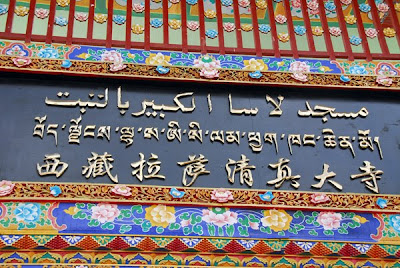 مسجد لاسا الكبير بالتبت
བོད་ལྗོངས་ལྷ་ས་ཨི་སི་ལམ་ཕྱག་ཁང་ཆེན་མོ།
西藏拉萨清真大寺